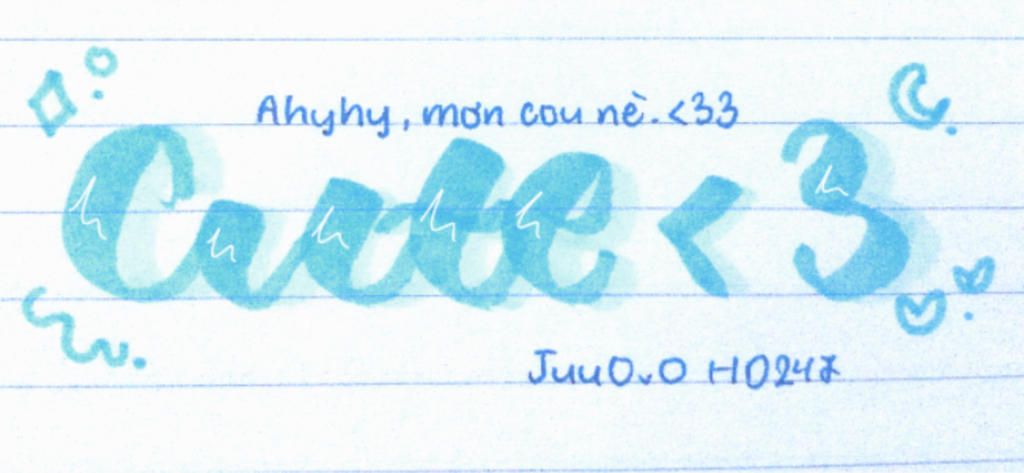 Ahyhy, mơn cou nè.<33
Cute<3
Juu0v0 H0247